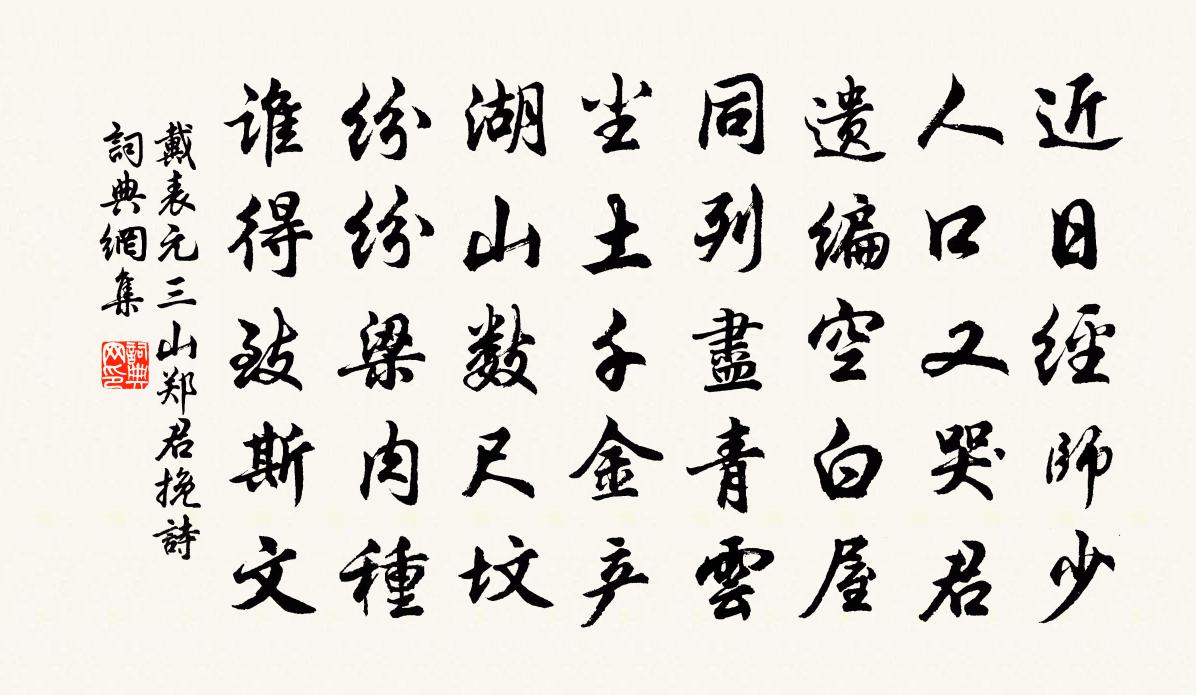 近日經師少
人口又哭君
遗编空白屋
同列盡青雲
坐土千金产
湖山数尺坟
纷纷粱肉種
谁得致斯文
戴表元三山郑君挽詩
詞典網集
詞典網印